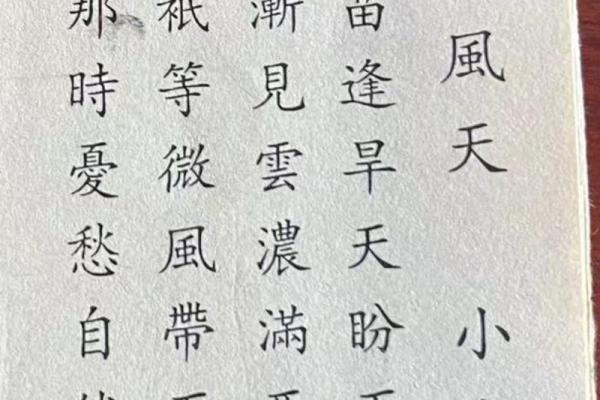 風天 小
苗逢旱天盼
漸見雲濃滿
祇等微風帶
那時憂愁自